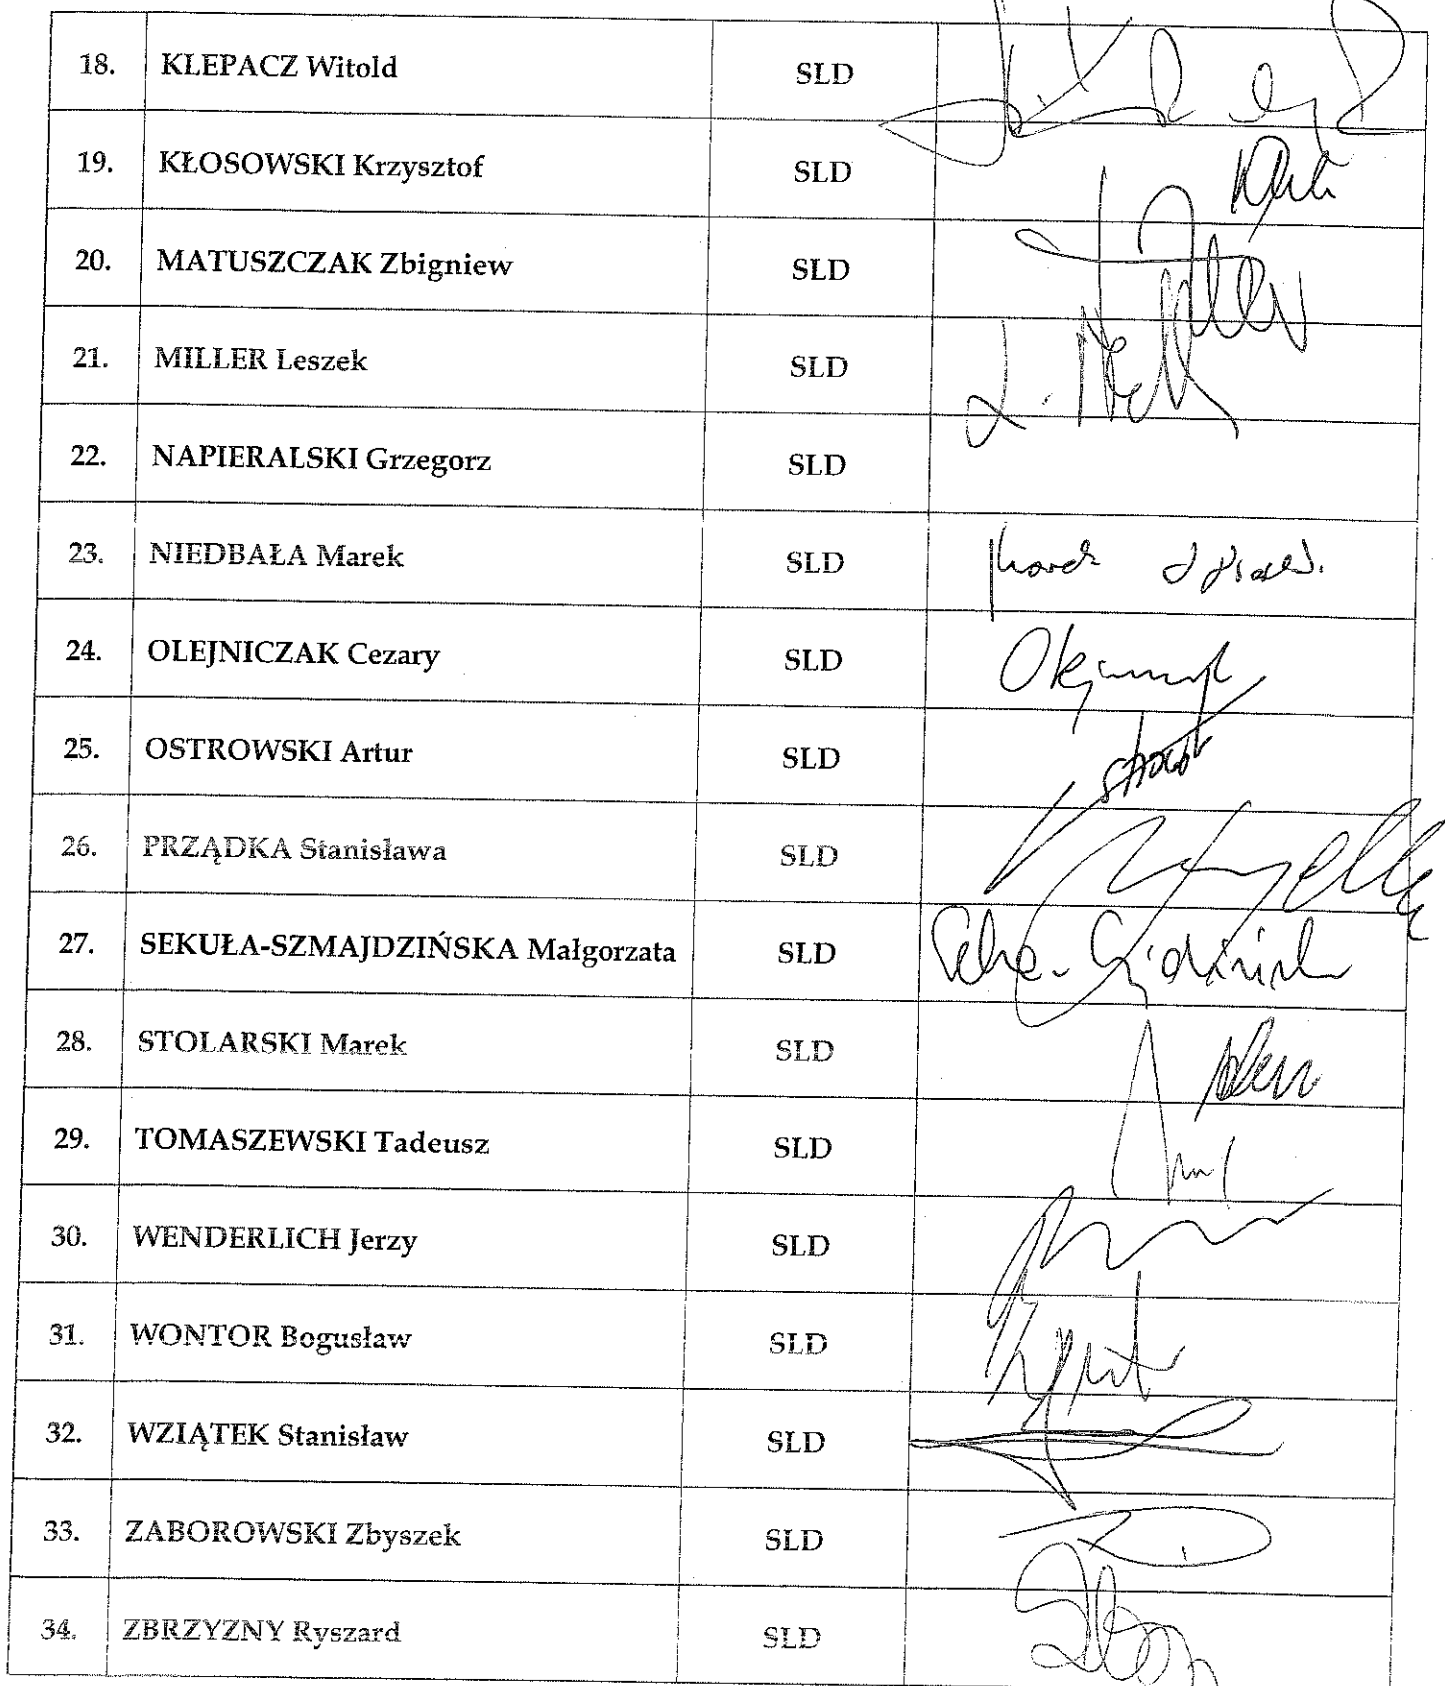 18. KLEPACZ Witold SLD
19. KŁOSOWSKI Krzysztof SLD
20. MATUSZCZAK Zbigniew SLD
21. MILLER Leszek SLD L. Miller
22. NAPIERALSKI Grzegorz SLD
23. NIEDBAŁA Marek SLD Marek
24. OLEJNICZAK Cezary SLD
25. OSTROWSKI Artur SLD
26. PRZĄDKA Stanisława SLD
27. SEKUŁA-SZMAJDZIŃSKA Małgorzata SLD
28. STOLARSKI Marek SLD
29. TOMASZEWSKI Tadeusz SLD
30. WENDERLICH Jerzy SLD
31. WONTOR Bogusław SLD
32. WZIĄTEK Stanisław SLD
33. ZABOROWSKI Zbyszek SLD
34. ZBRZYZNY Ryszard SLD